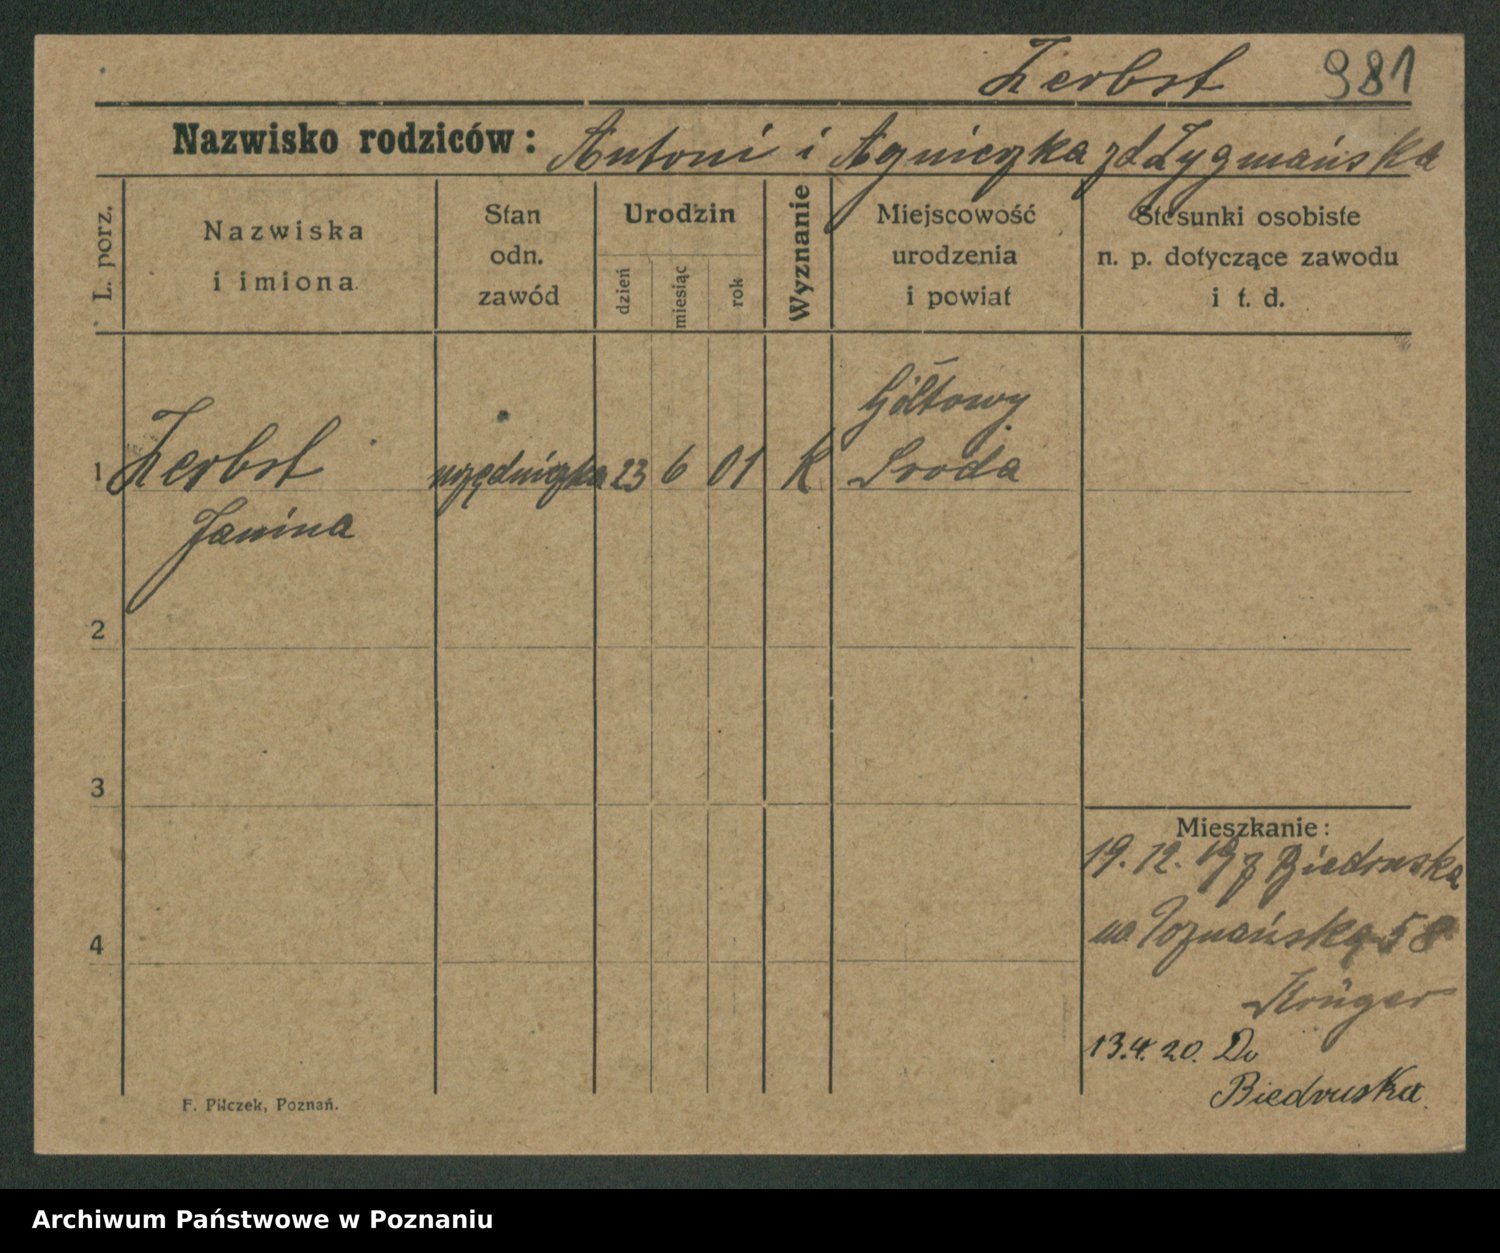 Zerbst 981
Nazwisko rodziców: Antoni i Agnieszka zd Zygmańska
L. porz.
Nazwiska
i imiona
Stan
odn.
zawód
Urodzin
dzień
miesiąc
rok
Wyznanie
Miejscowość
urodzenia
i powiat
Stosunki osobiste
n. p. dotyczące zawodu
i t. d.
1 Zerbst urzędniczka 23 6 01 K Gółtowy
Środa
Janina
2
3
4
Mieszkanie:
19. 12. 19 z Biedruska
na Poznańską 58
Krüger
13.4. 20. Do
Biedruska
F. Pilczek, Poznań.
Archiwum Państwowe w Poznaniu